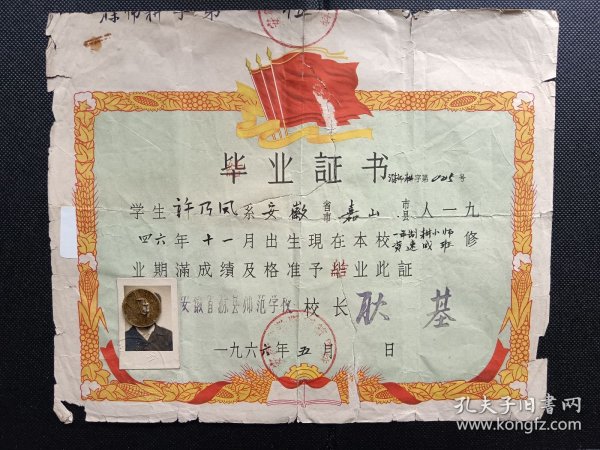 毕业証书
字第025号
学生許乃凤系安徽省市嘉山市县人一九
四六年十一月出生現在本校一年制耕小师
速成班修
业期滿成績及格准予毕业此証
安徽省 县师范学校 校长 耿基
一九六六年五月 日
孔夫子旧书网
www.kongfz.com